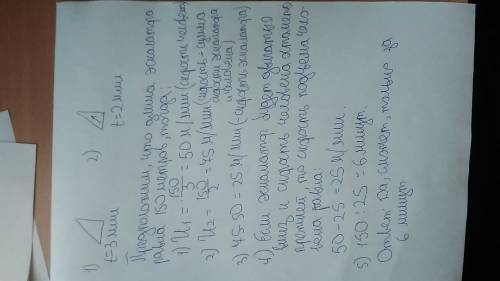 1) 2)
t=3 мин t=2 мин
Предположим, что длина эскалатора
равна 150 метров, тогда:
1) U1 = 150/3 = 50 м/мин (скорость человека)
2) U2 = 150/2 = 75 м/мин (скорость - сумма
скорости эскалатора
и человека)
3) 75-50 = 25 м/мин (-скорость эскалатора)
4) Если эскалатор будет двигаться
вниз и скорость человека останется
прежней, то скорость подъема чело-
века равна:
50-25 = 25 м/мин.
5) 150:25 = 6 минут.
Ответ: Да, сможет, только за
6 минут.